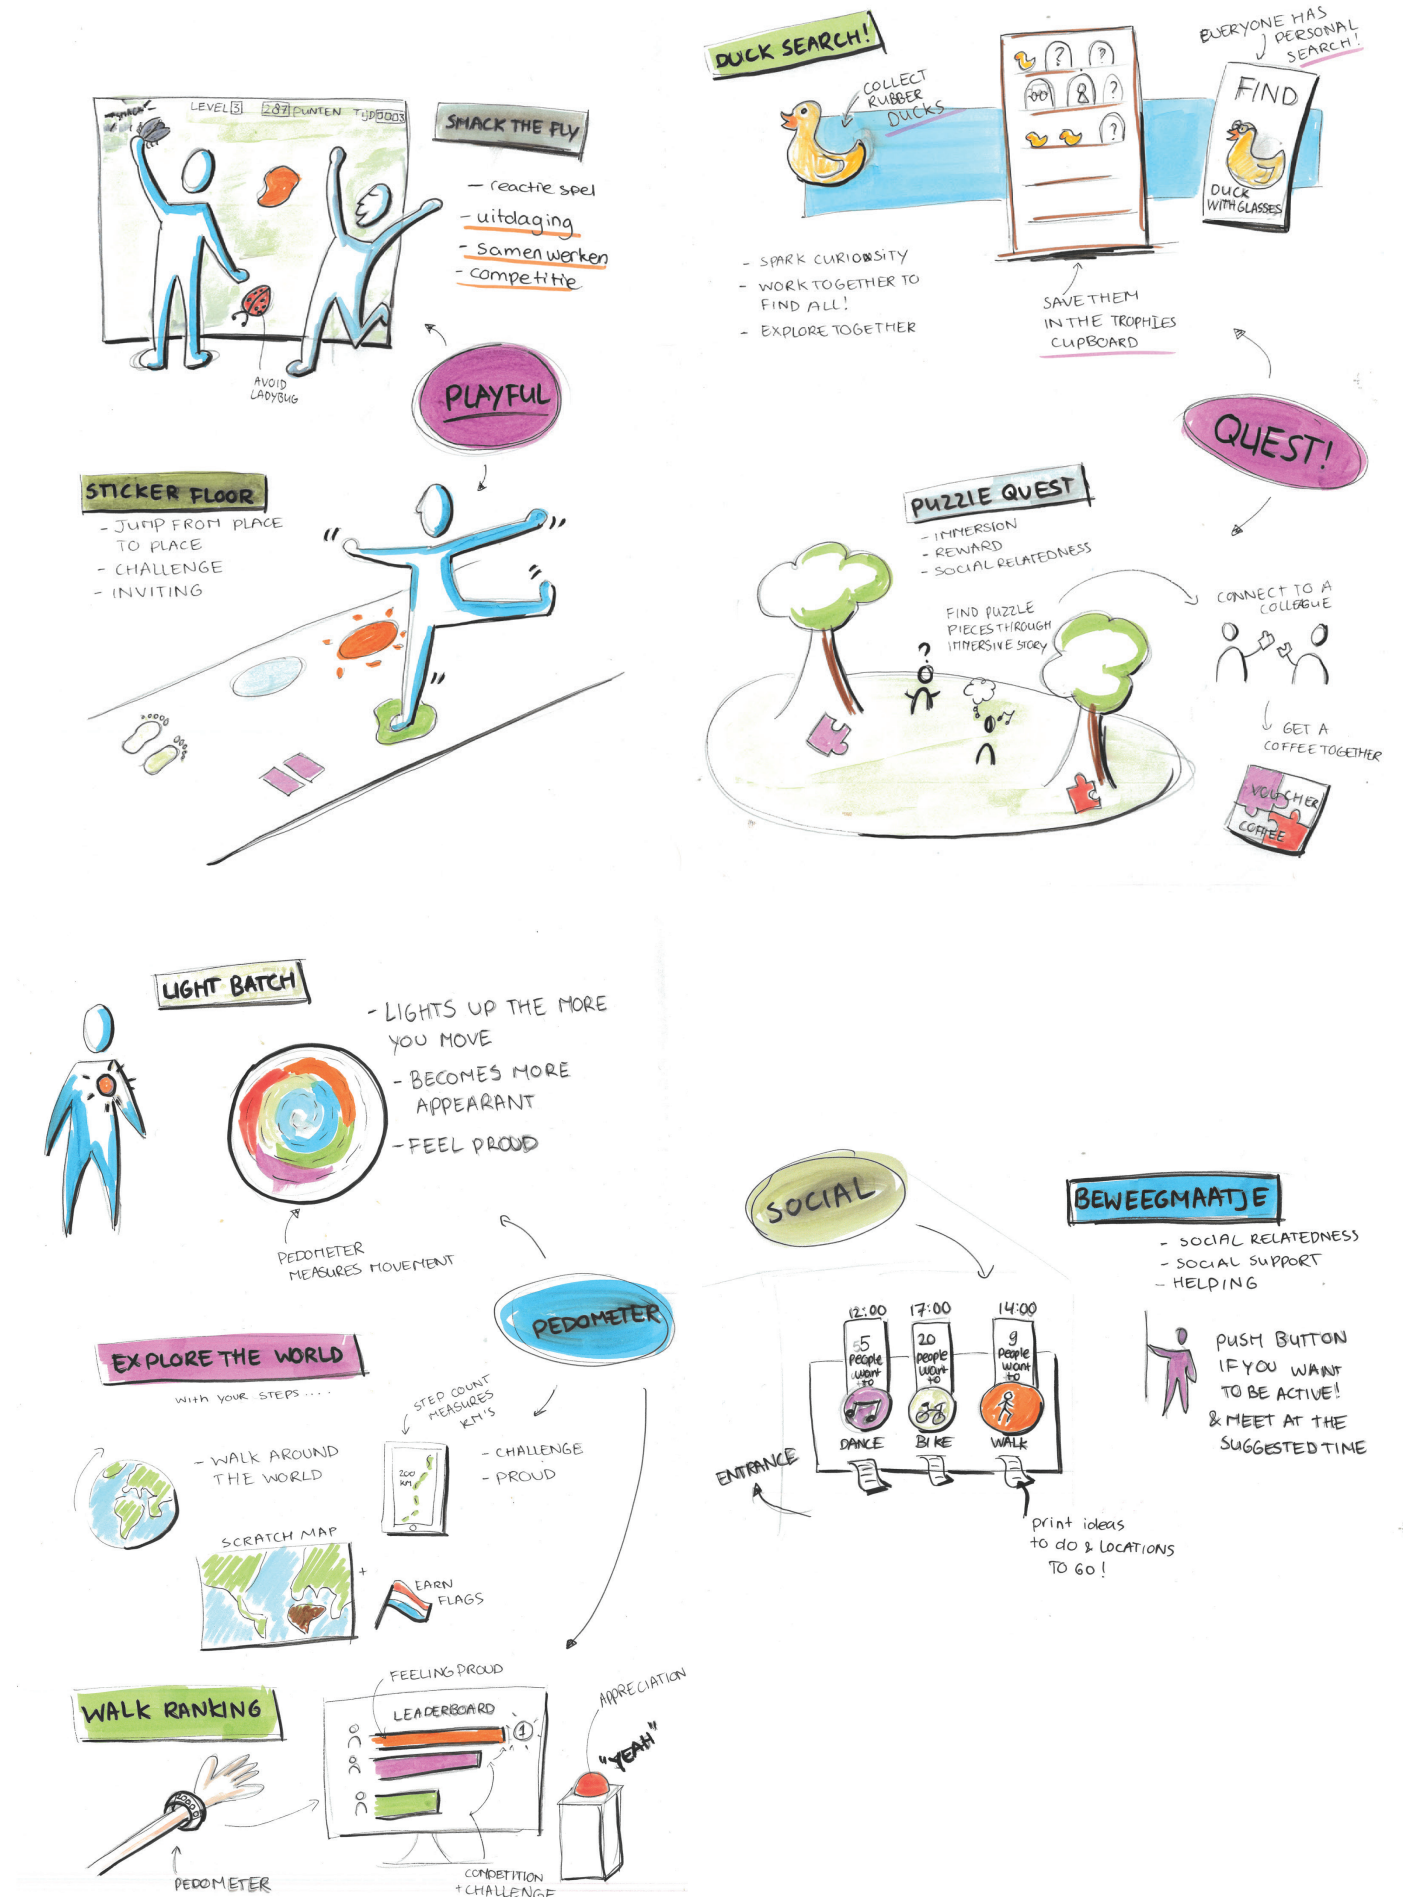 SMACK
LEVEL 3
287 PUNTEN
TIJD 0003
SMACK THE FLY
- reactie spel
- uitdaging
- samen werken
- competitie
AVOID
LADYBUG
PLAYFUL
STICKER FLOOR
- JUMP FROM PLACE
TO PLACE
- CHALLENGE
- INVITING
DUCK SEARCH!
COLLECT
RUBBER
DUCKS
? ?
?
?
EVERYONE HAS
PERSONAL
SEARCH!
FIND
DUCK
WITH GLASSES
- SPARK CURIOSITY
- WORK TOGETHER TO
FIND ALL!
- EXPLORE TOGETHER
SAVE THEM
IN THE TROPHIES
CUPBOARD
QUEST!
PUZZLE QUEST
- IMMERSION
- REWARD
- SOCIAL RELATEDNESS
FIND PUZZLE
PIECES THROUGH
IMMERSIVE STORY
?
CONNECT TO A
COLLEAGUE
GET A
COFFEE TOGETHER
VOUCHER
COFFEE
LIGHT BATCH
- LIGHTS UP THE MORE
YOU MOVE
- BECOMES MORE
APPEARANT
- FEEL PROUD
PEDOMETER
MEASURES MOVEMENT
PEDOMETER
EXPLORE THE WORLD
with your STEPS ....
- WALK AROUND
THE WORLD
STEP COUNT
MEASURES
KM'S
200
KM
- CHALLENGE
- PROUD
SCRATCH MAP
+
EARN
FLAGS
WALK RANKING
PEDOMETER
FEELING PROUD
LEADERBOARD
1
COMPETITION
+ CHALLENGE
APPRECIATION
"YEAH"
SOCIAL
BEWEEGMAATJE
- SOCIAL RELATEDNESS
- SOCIAL SUPPORT
- HELPING
12:00 17:00 14:00
55
People
want
to
20
people
want
to
9
People
want
to
DANCE BIKE WALK
ENTRANCE
print ideas
to do & LOCATIONS
TO GO!
PUSH BUTTON
IF YOU WANT
TO BE ACTIVE!
& MEET AT THE
SUGGESTED TIME